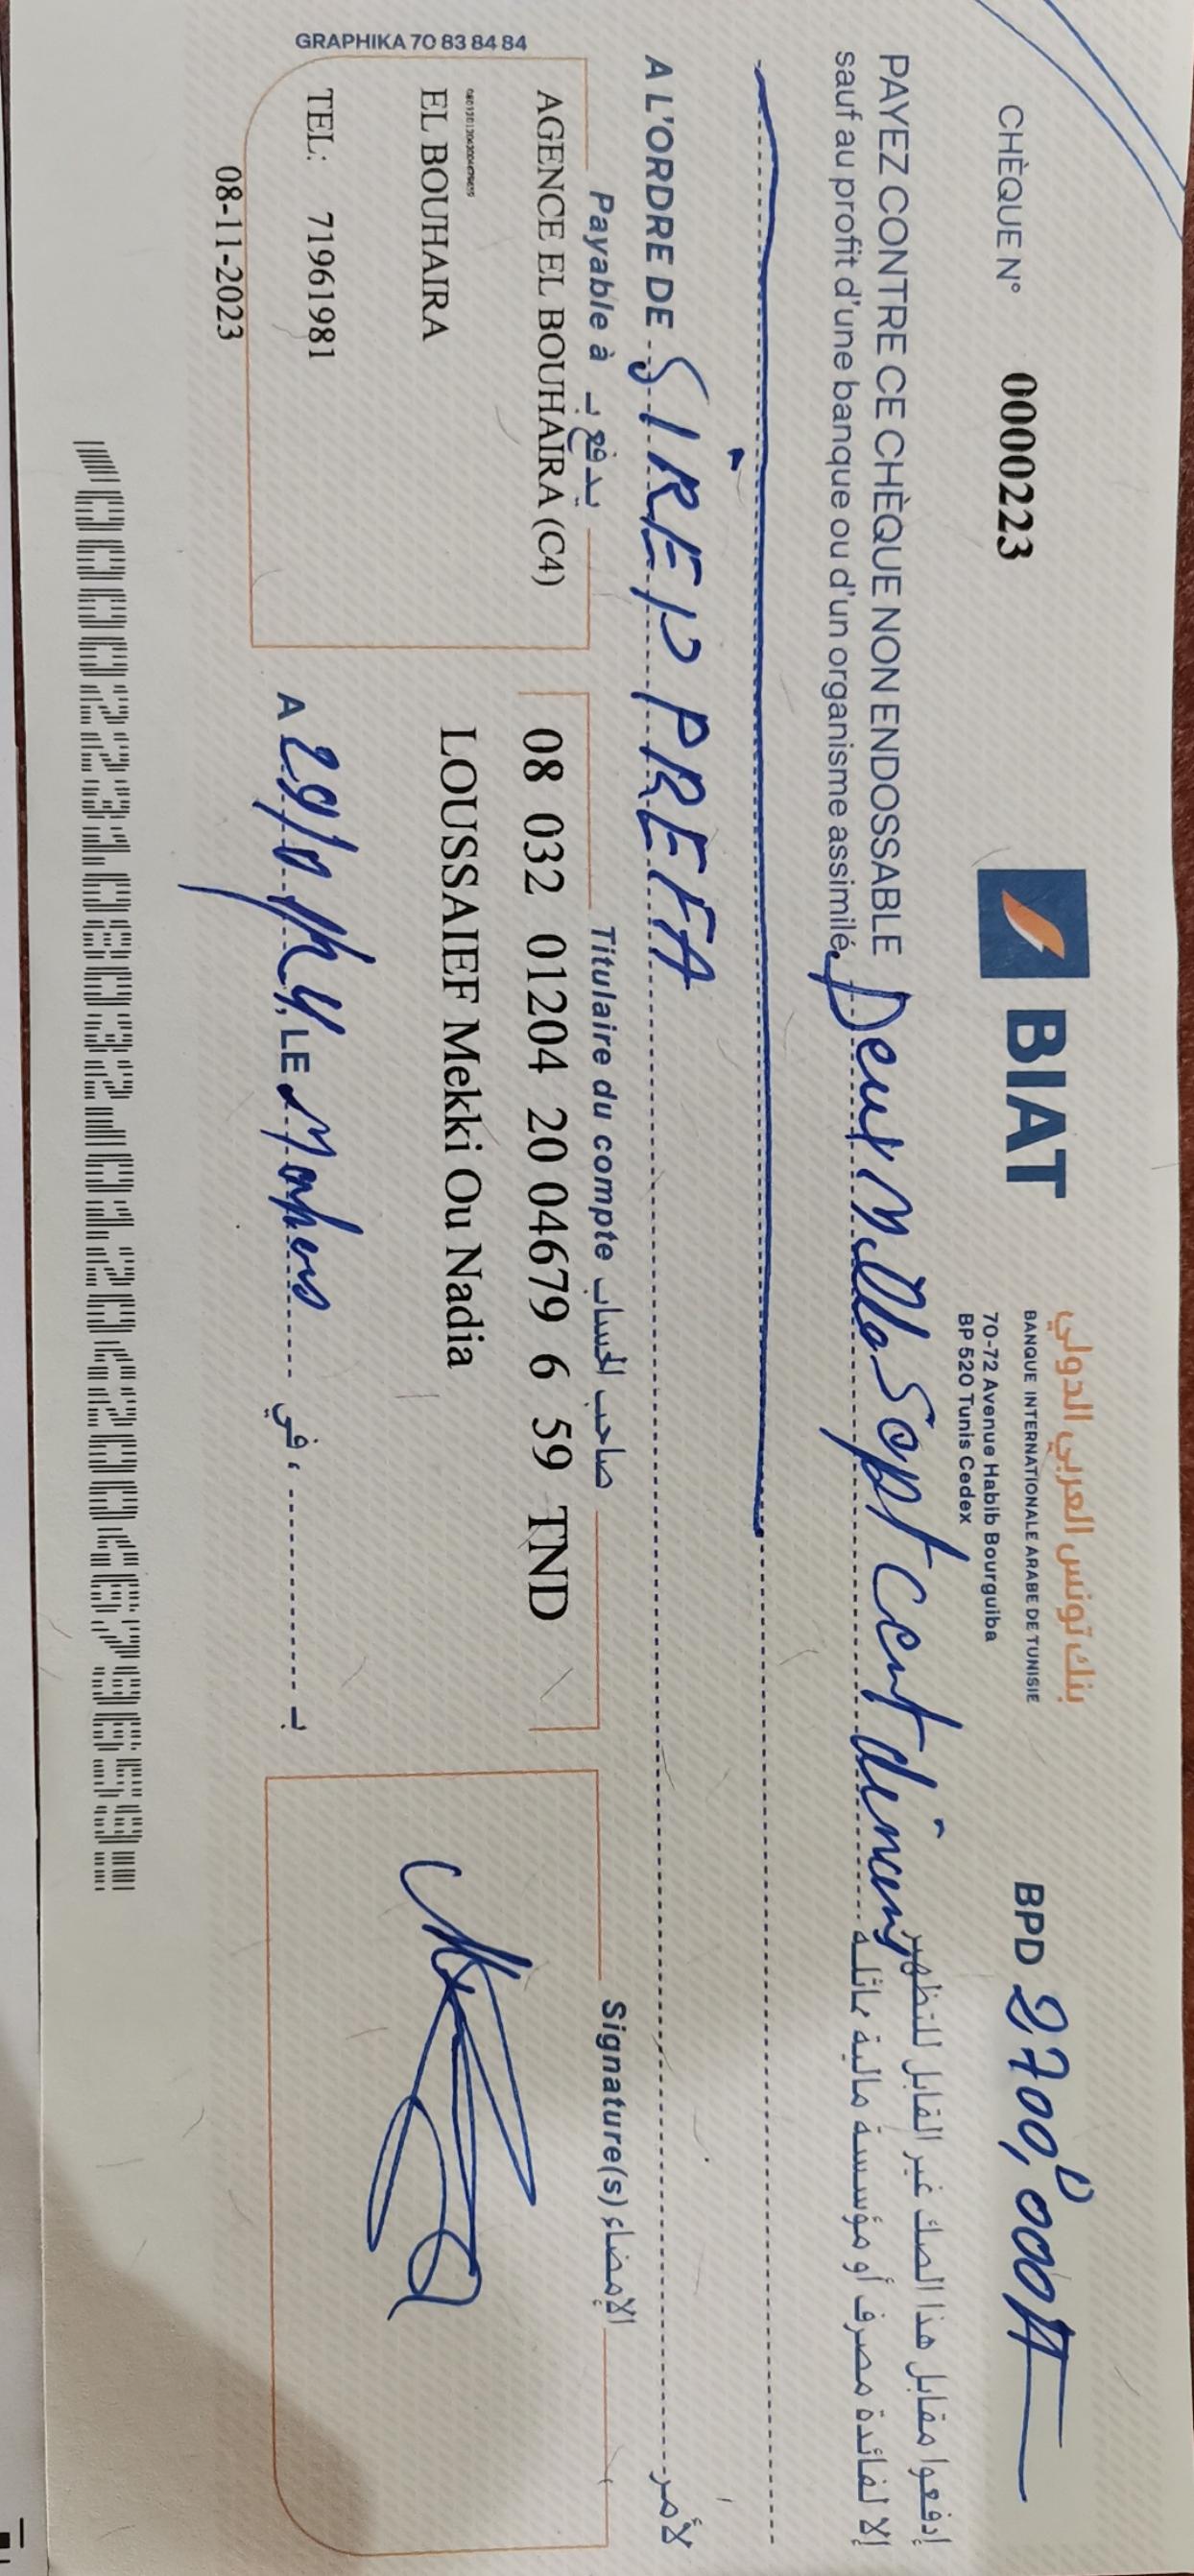 CHÈQUE N° 0000223
BIAT
بنك تونس العربي الدولي
BANQUE INTERNATIONALE ARABE DE TUNISIE
70-72 Avenue Habib Bourguiba
BP 520 Tunis Cedex
BPD 2700,D000
PAYEZ CONTRE CE CHÈQUE NON ENDOSSABLE
sauf au profit d'une banque ou d'un organisme assimilé
إدفعوا مقابل هذا الصك غير القابل للتظهير
إلا لفائدة مصرف أو مؤسسة مالية مماثلة
Deux Mille Sept Cent dinars
A L'ORDRE DE SIREP PREFA لأمر
Payable à يدفع بـ
AGENCE EL BOUHAIRA (C4)
EL BOUHAIRA
TEL: 71961981
08-11-2023
Titulaire du compte صاحب الحساب
08 032 01204 20 04679 6 59 TND
LOUSSAIEF Mekki Ou Nadia
A , LE ، في بـ
Signature(s) الإمضاء
GRAPHIKA 70 83 84 84